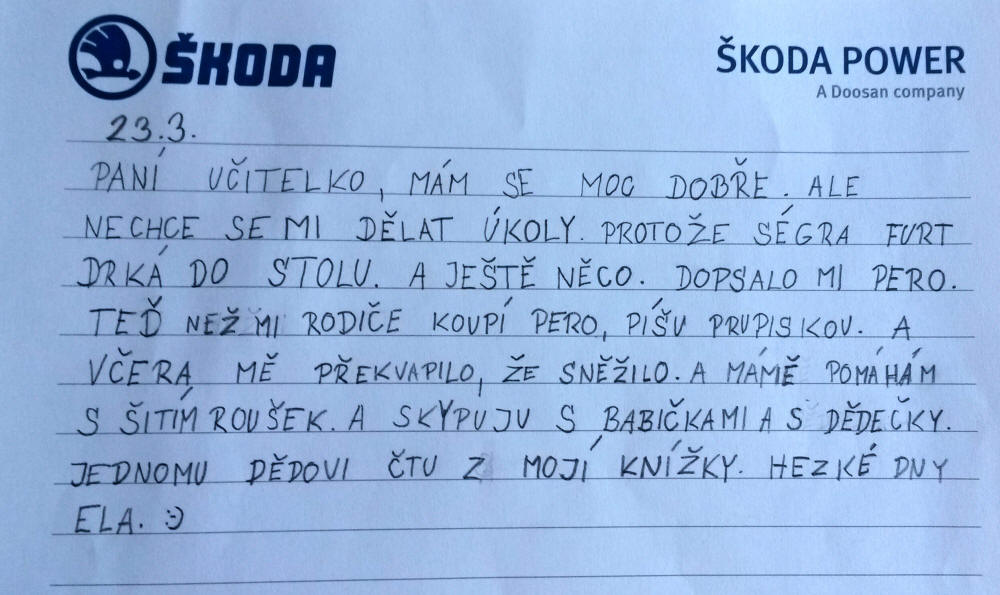 ŠKODA
ŠKODA POWER
A Doosan company
23.3.
PANÍ UČITELKO, MÁM SE MOC DOBŘE. ALE
NECHCE SE MI DĚLAT ÚKOLY. PROTOŽE SÉGRA FURT
DRKÁ DO STOLU. A JEŠTĚ NĚCO. DOPSALO MI PERO.
TEĎ NEŽ MI RODIČE KOUPÍ PERO, PÍŠU PRUPISKOU. A
VČERA MĚ PŘEKVAPILO, ŽE SNĚŽILO. A MÁMĚ POMÁHÁM
S ŠITÍM ROUŠEK. A SKYPUJU S BABIČKAMI A S DĚDEČKY.
JEDNOMU DĚDOVI ČTU Z MOJÍ KNÍŽKY. HEZKÉ DNY
ELA. :)